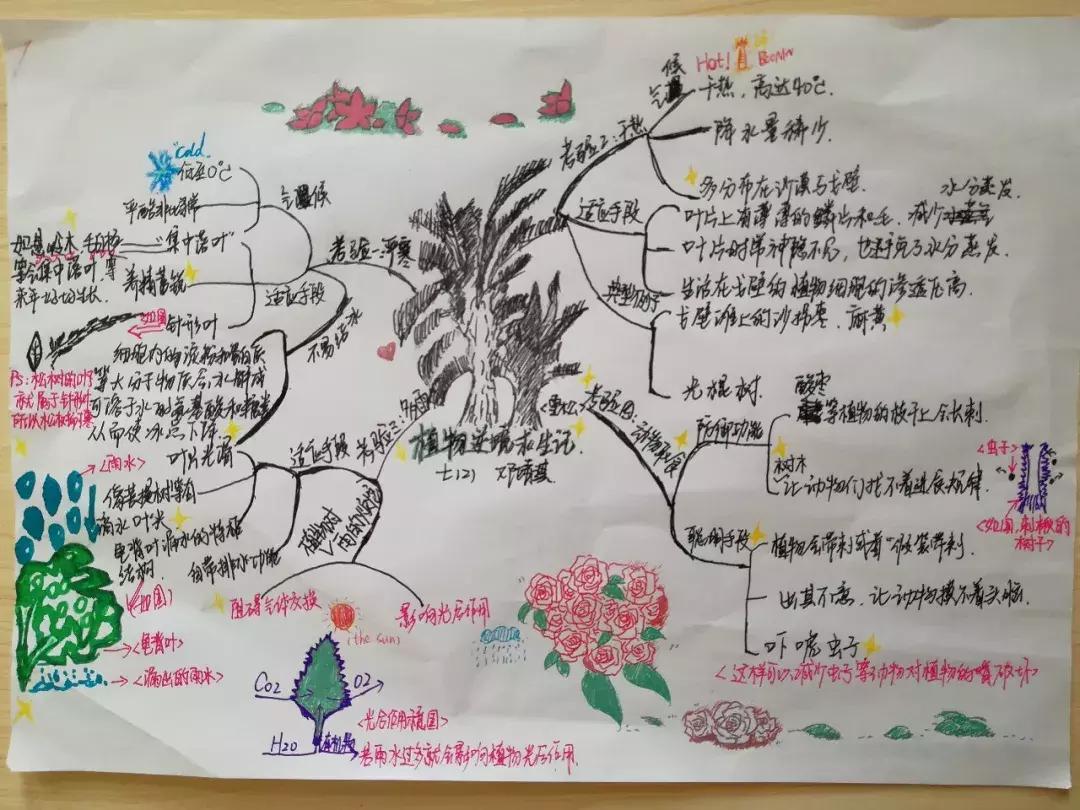 植物逆境求生记
七(2)
考验一:严寒
气候
"cold"
低至0℃
严酷非常
适应手段
"集中落叶"
等会集中落叶,等
来年好好生长
养精蓄锐
针形叶
<如图
PS:松树的叶子
就属于针形叶
所以松树耐寒
不易结冰
细胞内的淀粉和蛋白质
等大分子物质会水解成
可溶于水的氨基酸和糖类
从而使冰点下降
考验二:干热
气候
Hot!
干热,高达40℃.
降水量稀少.
多分布在沙漠与戈壁.
适应手段
叶片上有薄薄的鳞片和毛,减少水分蒸发
叶片时常神隐不见,也避免了水分蒸发.
生活在戈壁的植物细胞的渗透压高.
典型例子
戈壁滩上的沙拐枣、麻黄
光棍树
考验三:多雨
适应手段
叶片光滑
像菩提树等有
滴水叶尖
龟背叶漏水的特殊
结构
自带排水功能
<雨水>
<如图>
<龟背叶>
<漏出的雨水>
植物对
雨的烦恼
阻碍气体交换
影响光合作用
(the sun)
CO2
O2
H2O
有机物
<光合作用流程图>
若雨水过多就会影响植物光合作用.
考验四:动物取食
防御功能
酸枣
等植物的枝干上会长刺.
树木
让动物们找不着进食规律.
<虫子>
<如图,刺橄的
树子>
聪明手段
植物会带刺或者"假装带刺.
出其不意,让动物摸不着头脑.
吓唬虫子
<这样可以减少虫子等动物对植物的嘴破坏>